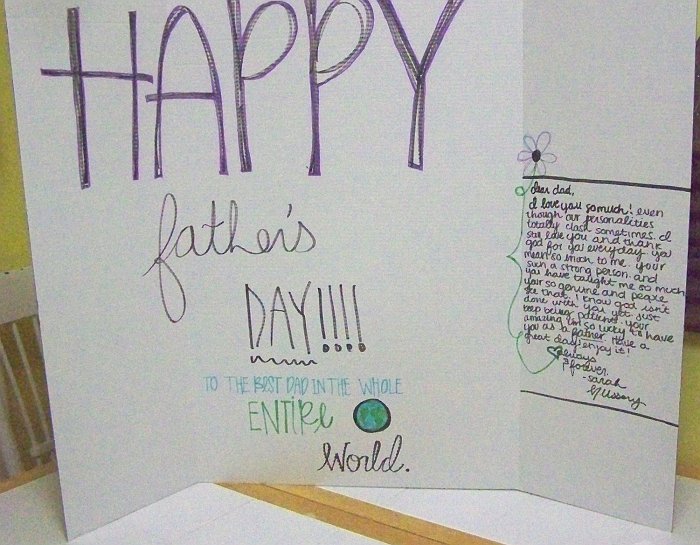 HAPPY
father's
DAY!!!!
TO THE BEST DAD IN THE WHOLE
ENTIRE
world.
dear dad,
I love you so much! even
though our personalities
totally clash sometimes. I
still love you and thank
god for you everyday. you
mean so much to me. your
such a strong person. and
you have taught me so much
your so genuine and people
see that. I know god isn't
done with you yet just
keep being patient. your
amazing im so lucky to have
you as a father. have a
great day! enjoy it!
always
& forever.
-sarah